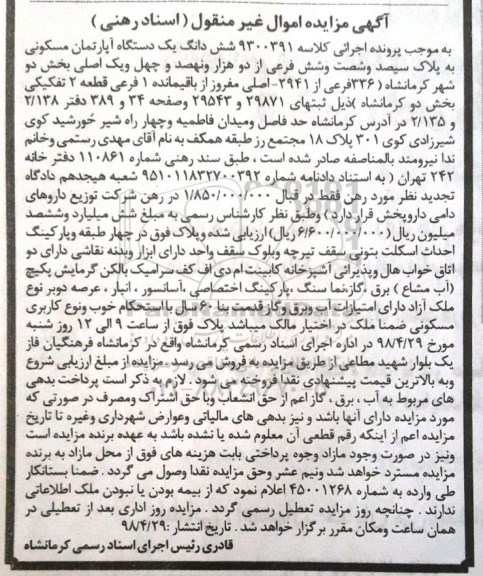 آگهی مزایده اموال غیر منقول ( اسناد رهنی )
به موجب پرونده اجرائی کلاسه ۹۳۰۰۳۹۱ شش دانگ یک دستگاه آپارتمان مسکونی
به پلاک سیصد وشصت وشش فرعی از دو هزار ونهصد و چهل ویک اصلی بخش دو
شهر کرمانشاه (۳۳۶فرعی از ۲۹۴۱- اصلی مفروز از باقیمانده ۱ فرعی قطعه ۲ تفکیکی
بخش دو کرمانشاه )ذیل ثبتهای ۲۹۸۷۱ و ۲۹۵۴۳ وصفحه ۳۴ و ۳۸۹ دفتر ۲/۱۳۸
و ۲/۱۳۵ در آدرس کرمانشاه حد فاصل ومیدان فاطمیه وچهار راه شیر خورشید کوی
شیرزادی کوی ۳۰۱ پلاک ۱۸ مجتمع رز طبقه همکف به نام آقای مهدی رستمی وخانم
ندا نیرومند بالمناصفه صادر شده است ، طبق سند رهنی شماره ۱۱۰۸۶۱ دفتر خانه
۲۴۲ تهران ( به استناد دادنامه شماره ۹۵۱۰۱۱۸۳۲۷۰۰۳۹۲ شعبه هیجدهم دادگاه
تجدید نظر مورد رهن فقط در قبال ۱/۸۵۰/۰۰۰/۰۰۰ در رهن شرکت توزیع داروهای
دامی داروپخش قرار دارد ) وطبق نظر کارشناس رسمی به مبلغ شش میلیارد وششصد
میلیون ریال (۶/۶۰۰/۰۰۰/۰۰۰ ریال) ارزیابی شده وپلاک فوق در چهار طبقه وپارکینگ
احداث اسکلت بتونی سقف تیرچه وبلوک سقف واحد دارای ابزار وبدنه نقاشی دارای دو
اتاق خواب هال وپذیرائی آشپزخانه کابینت ام دی اف کف سرامیک بالکن گرمایش پکیج
(آب مشاع ) برق ،گاز،نما سنگ ،پارکینگ اختصاصی ،آسانسور ، انبار ، عرصه دوبر نوع
ملک آزاد دارای امتیازات آب وبرق وگاز قدمت بنا ۶۰ سال با استحکام خوب ونوع کاربری
مسکونی ضمنا ملک در اختیار مالک میباشد پلاک فوق از ساعت ۹ الی ۱۲ روز شنبه
مورخ ۹۸/۴/۲۹ در اداره اجرای اسناد رسمی کرمانشاه واقع در کرمانشاه فرهنگیان فاز
یک بلوار شهید مطاعی از طریق مزایده به فروش می رسد . مزایده از مبلغ ارزیابی شروع
وبه بالاترین قیمت پیشنهادی نقدا فروخته می شود . لازم به ذکر است پرداخت بدهی
های مربوط به آب ، برق ، گاز اعم از حق انشعاب ویا حق اشتراک ومصرف در صورتی که
مورد مزایده دارای آنها باشد و نیز بدهی های مالیاتی وعوارض شهرداری وغیره تا تاریخ
مزایده اعم از اینکه رقم قطعی آن معلوم شده یا نشده باشد به عهده برنده مزایده است
ونیز در صورت وجود مازاد وجوه پرداختی بابت هزینه های فوق از محل مازاد به برنده
مزایده مسترد خواهد شد ونیم عشر وحق مزایده نقدا وصول می گردد . ضمنا بستانکار
طی وارده به شماره ۴۵۰۰۱۲۶۸ اعلام نمود که از بیمه بودن یا نبودن ملک اطلاعاتی
ندارند . چنانچه روز مزایده تعطیل رسمی گردد . مزایده روز اداری بعد از تعطیلی در
همان ساعت ومکان مقرر برگزار خواهد شد . تاریخ انتشار :۹۸/۴/۲۹
قادری رئیس اجرای اسناد رسمی کرمانشاه